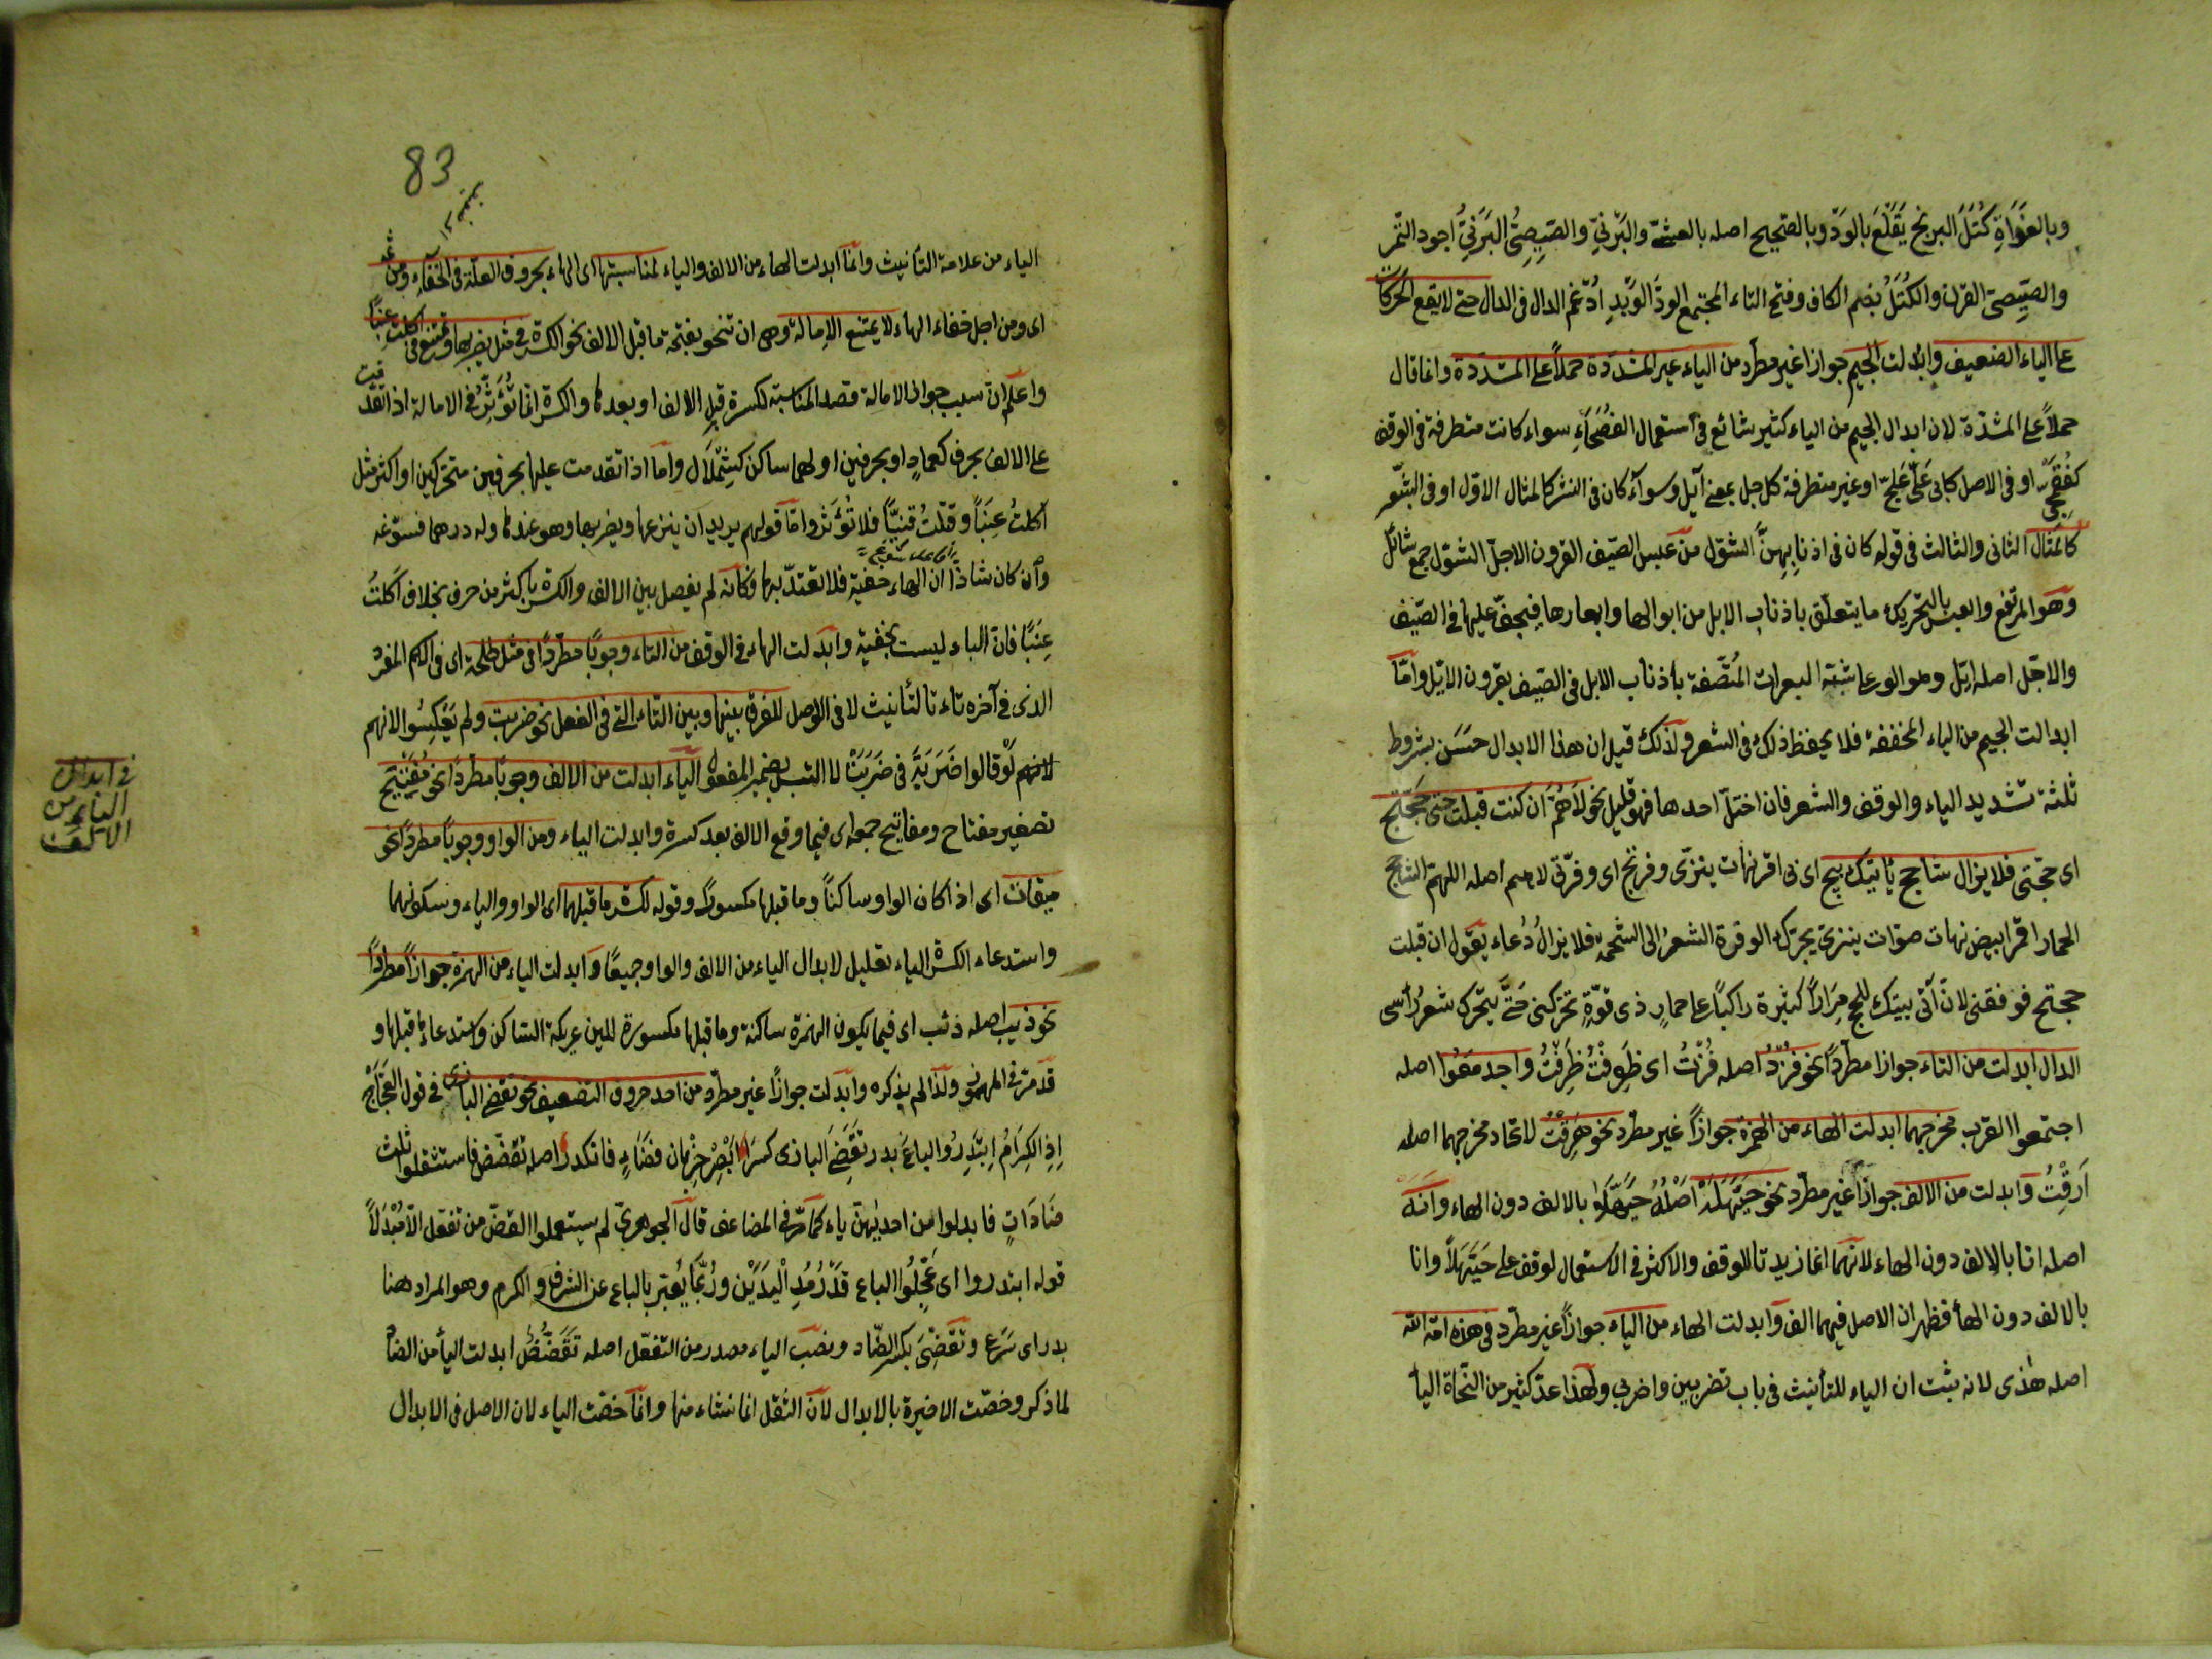 وبالغَدَاةِ كُتَلَ البرنج يَقَلَّعَ بالوَدّ وبالصّيج اصله بالعشىّ والبَرْنِيّ والصّيصِيّ البَرْنِيُّ اجود التّمر
والصّيصِيّ القرن والكُتَلُ بضم الكاف وفتح التاء المجتمع الودّ الوَتِدِ اُدْغم الدال فى الدال حتى لا يقع الحركات
على الياء الضعيف وابدلت الجيم جوازا غير مطّرد من الياء غير المشدّدة حملاً على المشدّدة وانما قال
حملاً على المشدّدة لان ابدال الجيم من الياء كثير شائع فى استعمال الفُصَحَآءِ سواء كانت متطرفة فى الوقف
كفُقَيْمِجّ او فى الاصل كابى عَلِىّ عَلِجّ او غير متطرفة كاجل بمعنى ايّل وسوآء كان فى النثر كالمثال الاوّل او فى الشّعر
كالمثال الثانى والثالث فى قوله كان فى اذنابِهِنَّ الشوّل من عبس الصّيف القرون الاجلّ الشوّل جمع شائل
وهو المرتفع والعبس بالتحريك ما يتعلّق باذناب الابل من ابوالها وابعارها فيجفّ عليها فى الصّيف
والاجّل اصله ايّل وهو الوعل شبّه البعرات المُتّصفة باذناب الابل فى الصّيف بقرون الايّل وامّا
ابدالت الجيم من الياء المخففة فلا يحفظ ذلك فى الشعر ولذلك قيل ان هذا الابدال حَسَن بشروط
ثلثة تشديد الياء والوقف والشعر فان اختلّ احدها فهو قليل نحو لاَهُمّ اَن كنت قبلت حجّتج
اى حجّتى فلا يزال شاحج ياتيك بج اى بى اقر نهات ينزّى وفرتج اى وفرتى لاهم اصله اللهم الشاحج
الحمار اقمر ابيض نهات صوّات ينزى يحرّك الوفرة الشعر الى الشحمة فلا يزالُ دُعاء يقول ان قبلت
حجتج فوفقنى لان آتى بيتك للحج مِرَاراً كثيرة راكبًا على حمارٍ ذى قوّةٍ تحرّكنى حَتَّى يتحّرك شعرُ رأسى
الدال ابدلت من التاء جوازا مطّرداً نحو فُزْدُ اصله فُزْتُ اى ظَفِرْتُ واجدمعوا اصله
اجتمعوا القرب مخرجهما ابدلت الهاء من الهمزة جوازاً غير مطرد نحو هَرَقْتُ لاتحاد مخرجهما اصله
اَرَقْتُ وابدلت من الالف جوازاً غير مطّرد نحو حَيَّهَلَهْ اَصْلُهُ حَيَّهَلاَ بالالف دون الهاء وَاَنَهْ
اصله انا بالالف دون الهاء لانهما انما زيدتا للوقف والاكثر فى الاستعمال لوقف على حَيَّهَلاً وانا
بالالف دون الهأ فظهر ان الاصل فيهما الف وابدلت الهاء من الياء جوازاً غير مطّرد فى هذه امة الله
اصله هذى لانه يثبت ان الياء للتأنيث فى باب تضربين واضربى ولهذا عدّ كثير من النحاة اليأ
83
الياء من علامة التأنيث وانّما ابدلت الهاء من الالف والياء لمناسبتها اى الهاء بحروف العلّة فى الخفآء ومن ثمه
اى ومن اجل خفاء الهاء لا يمتنع الامالة وهى ان تنحو بفتحة ما قبل الالف نحو الكسرة فى مثل يضربها ويمتنع فى اكلت عِنَبًا
واعلم انّ سبب جواز الامالة قصد المناسبة لكسرة قبل الالف او بعدها والكسرة انما تُؤَثِّرُ فى الامالة اذا تقدّمت
على الالف بحرف كعمادٍ او بحرفين اولهما ساكن كشِمْلاَل واما اذا تقدمت عليها بحرفين متحركين او اكثر مثل
اكلتُ عِنَباً وقتلتُ قنيّاً فلا تُؤَثر وامّا قولهم يريد ان ينزعها ويضربها وهو عندها وله درهما فسوّغه
وان كان شاذًّا ان الهاء خفيّة فلا تعتدّ بها وكانه لم يفصل بين الالف والكسرة باكثر من حرف بخلاف اكلتُ
عِنَبًا فان الباء ليست بخفيّة وابدلت الهاء فى الوقف من التاء وجوبًا مطّرداً فى مثل طلحة اى فى الاسم المفرد
الذى فى آخره تاء تالتأنيث لا فى الاوصل للفرق بينها وبين التاء التى فى الفعل نحو ضربت ولم يَعْكِسُوا لانهم
لانهم لَوْ قالوا ضَرَبَهْ فى ضَرَبَتْ لالتبس بضمير المفعول الياء ابدلت من الالف وجوبًا مطردًا نحو مُفَيْتِيح
تصغير مفتاح ومفاتيح جمعه اى فيما وقع الالف بعد كسرة وابدلت الياء ومن الواو وجوبًا مطردًا نحو
ميقات اى اذا كان الواو ساكنًا وما قبلها مكسورًا وقوله لكسرة ما قبلهما اى الواو والياء وسكونهما
واستدعاء الكسرة الياء تعليل لابدال الياء من الالف والواو جميعًا وابدلت الياء من الهمزة جوازاً مطرداً
نحو ذيب اصله ذئب اى فيما يكون الهمزة ساكنة وما قبلها مكسورة للين عريكة الساكن واستدعاء ما قبلها و
قد مرّ فى المهموز ولذا لم يذكره وابدلت جوازًا غير مطّرد من احد حروف التضعيف نحو تقضّى البازى فى قول العَجّاج
اِذِ الكِرَامُ اِبْتَدِرُوا الباعَ بدر تقَضِّىَ البازى كسَرَ اَبْصَرَ خِرْبان فضَاءٍ فانكدر اصله تقضّض فاستثقلوا ثلث
ضَادَاتٍ فابدلوا من احديهنّ ياء كما مَرّ فى المضاعف قال الجوهرىّ لم يستعملوا القضّ من تفعّل الاّ مُبْدَلاً
قوله ابتدروا اى عَجِّلُوا الباع قَدْرُ مَدِ الْيَدَيْن ورُبَّمَا يُعَبّر بالباع عن الشرف والكرم وهو المراد هنا
بدر اى سَرَع وتَقَضِّىَ بكسر الضّاد ونصب الياء مصدر من التفعّل اصله تَقَضُّضُ ابدلت اليأ من الضاد
لما ذكر وخصّت الاخيرة بالابدال لانّ الثقل انما نشاء منها وانّما خصّت الياء لان الاصل فى الابدال
فى ابدال
الياء من
الالف